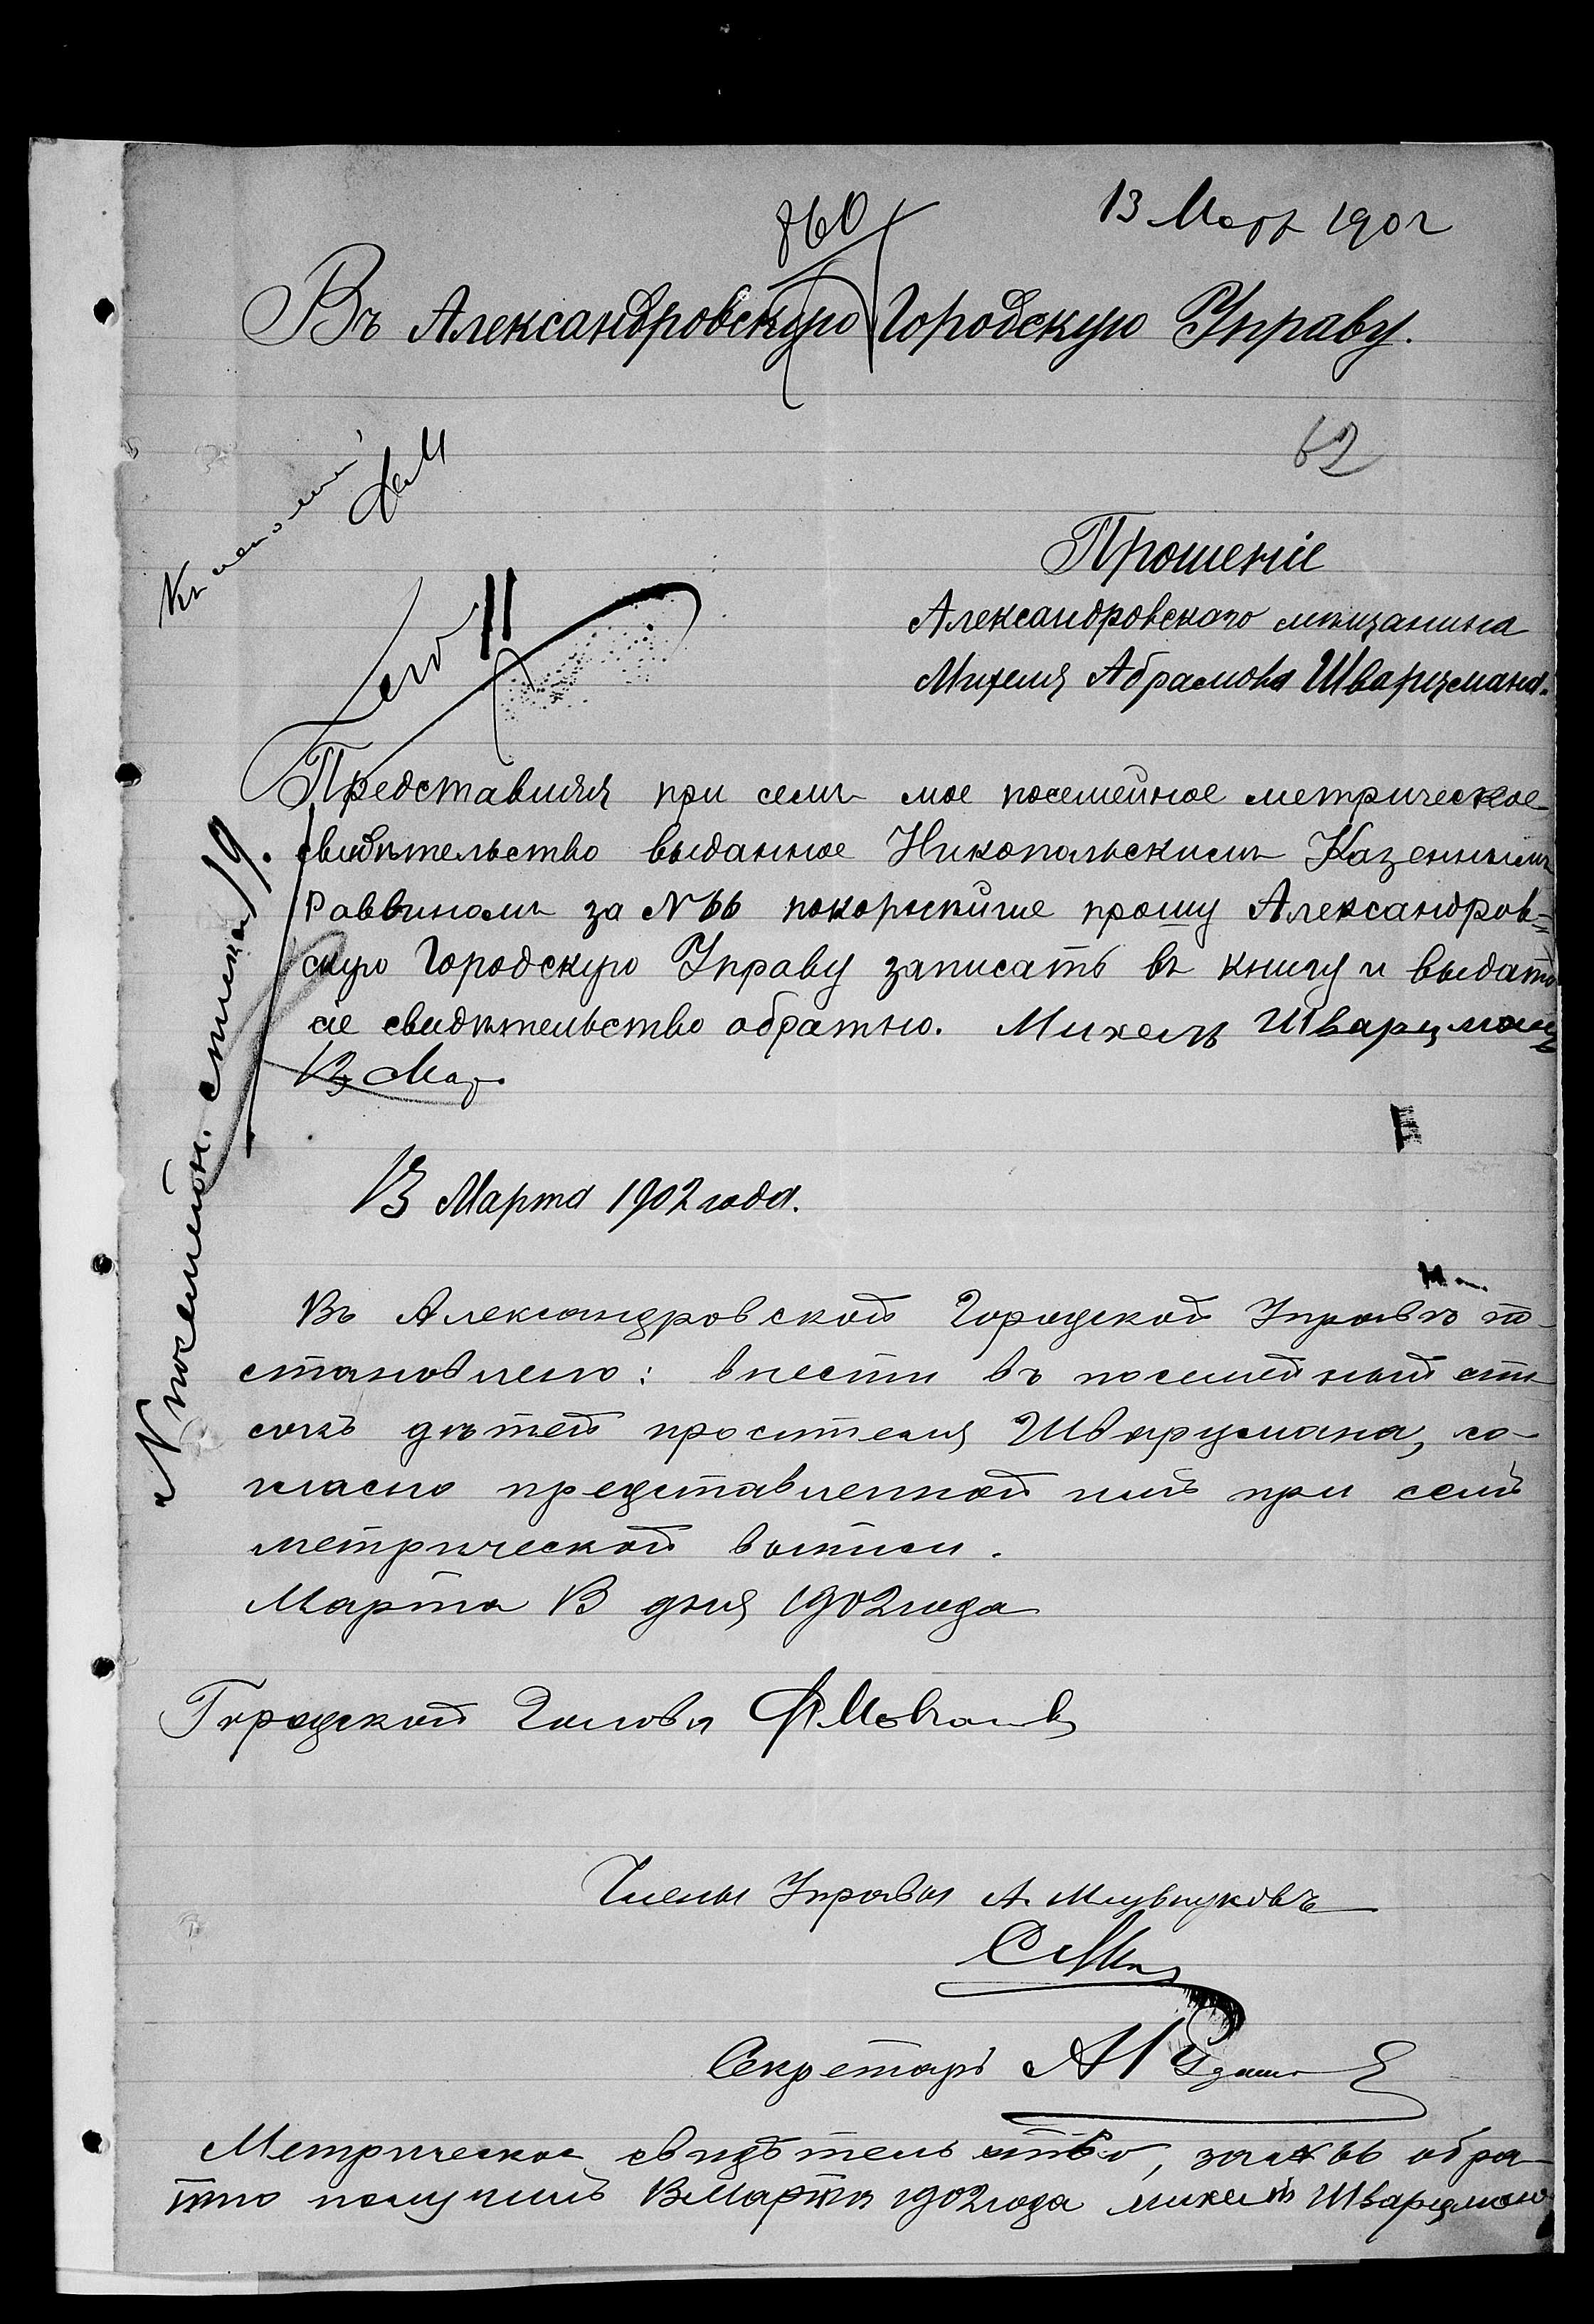 13 Март 1902
860
Въ Александровскую Городскую Управу.
62
Прошеніе
Александровскаго мѣщанина
Михеля Абрамова Шварцмана.
Представляя при семъ мое посемейное метрическое
свидѣтельство выданное Никопольскимъ Казеннымъ
Раввиномъ за № 66 покорнѣйше прошу Александров=
скую Городскую Управу записать въ книгу и выдать
сіе свидѣтельство обратно. Михель Шварцманъ
13 Мар.
№ посемейн. списка 19.
13 Марта 1902 года.
Въ Александровской Городской Управѣ по-
становлено: внести въ посемейный спи-
сокъ дѣтей просителя Шварцмана, со-
гласно представленной имъ при семъ
метрической выписи.
Марта 13 дня 1902 года
Городской Голова Ф Мовчанов
Члены Управы А.
Секретарь
Метрическое свидѣтельство, за № 66 обра-
тно получилъ 13 Марта 1902 года Михель Шварцман